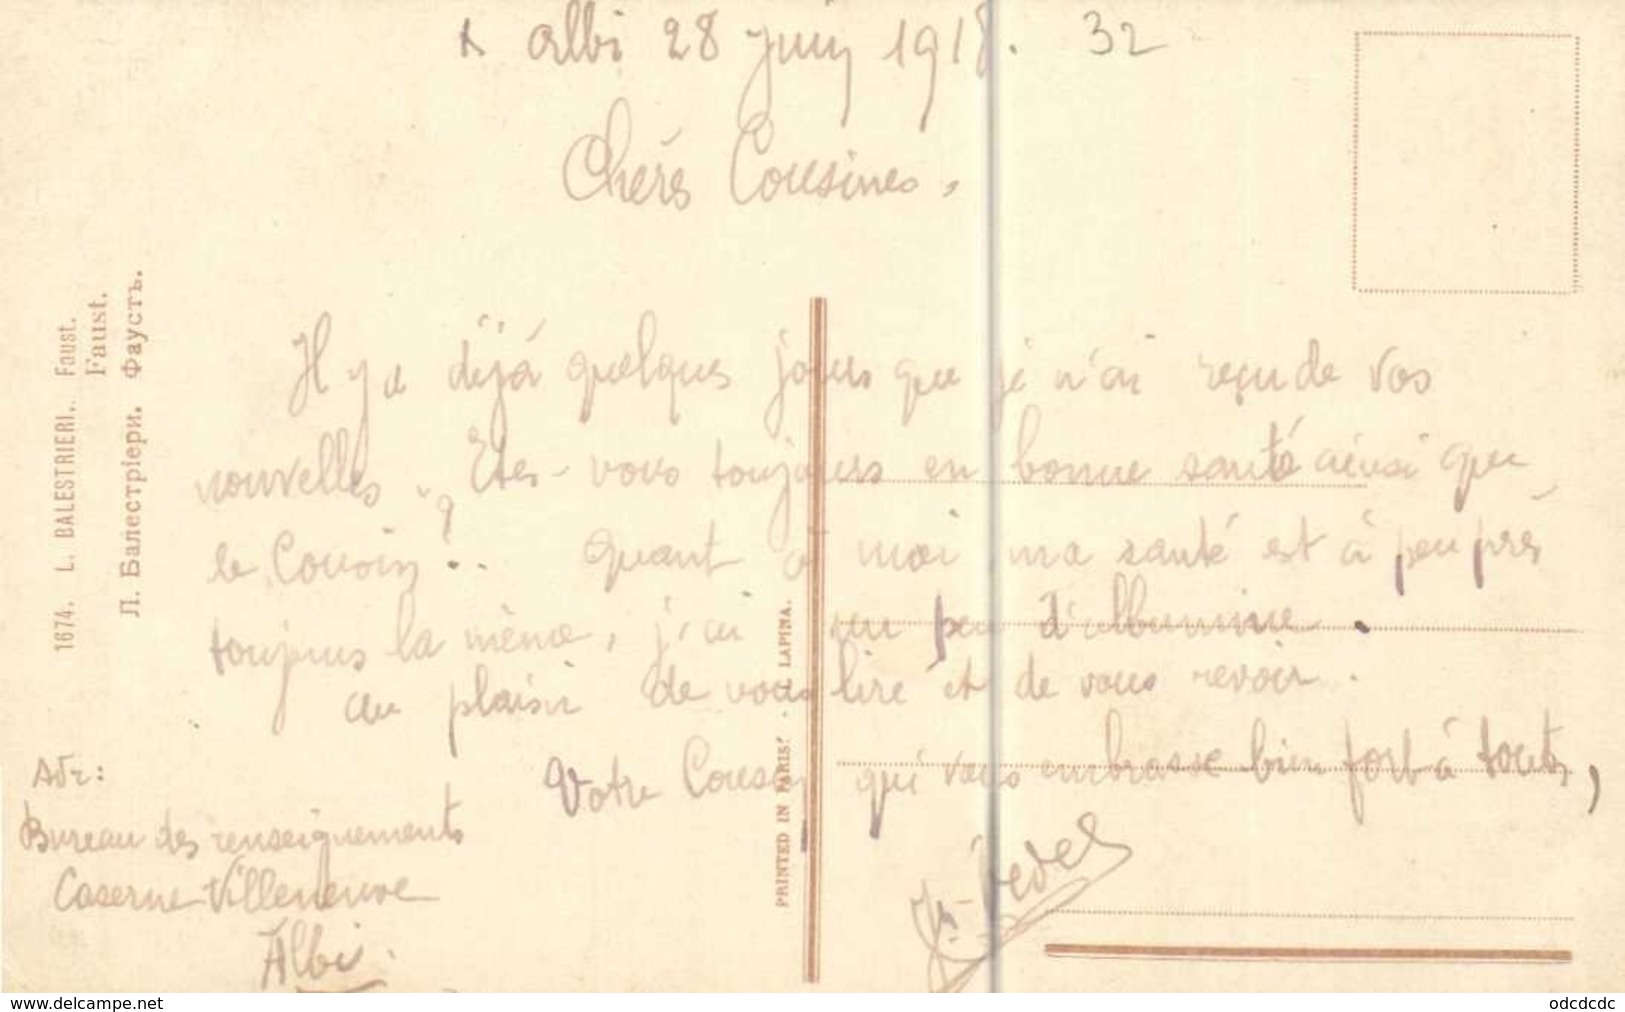 Albi 28 juin 1918. 32
Chérs Cousines,
Il y a déjà quelques jours que je n'ai reçu de vos
nouvelles. Etes-vous toujours en bonne santé ainsi que
le Cousin?.. quant à moi ma santé est à peu prés
toujours la même, j'ai un peu d'albumine.
au plaisir de vous lire et de vous revoir.
Votre Cousin qui vous embrasse bien fort à toutes,
Adr:
Bureau des renseignements
Caserne Villeneuve
Albi.
1674. L. BALESTRIERI. Faust.
Faust.
Л. Балестріери. Фаустъ.
PRINTED IN PARIS. - I. LAPINA.
www.delcampe.net
odcdcdc